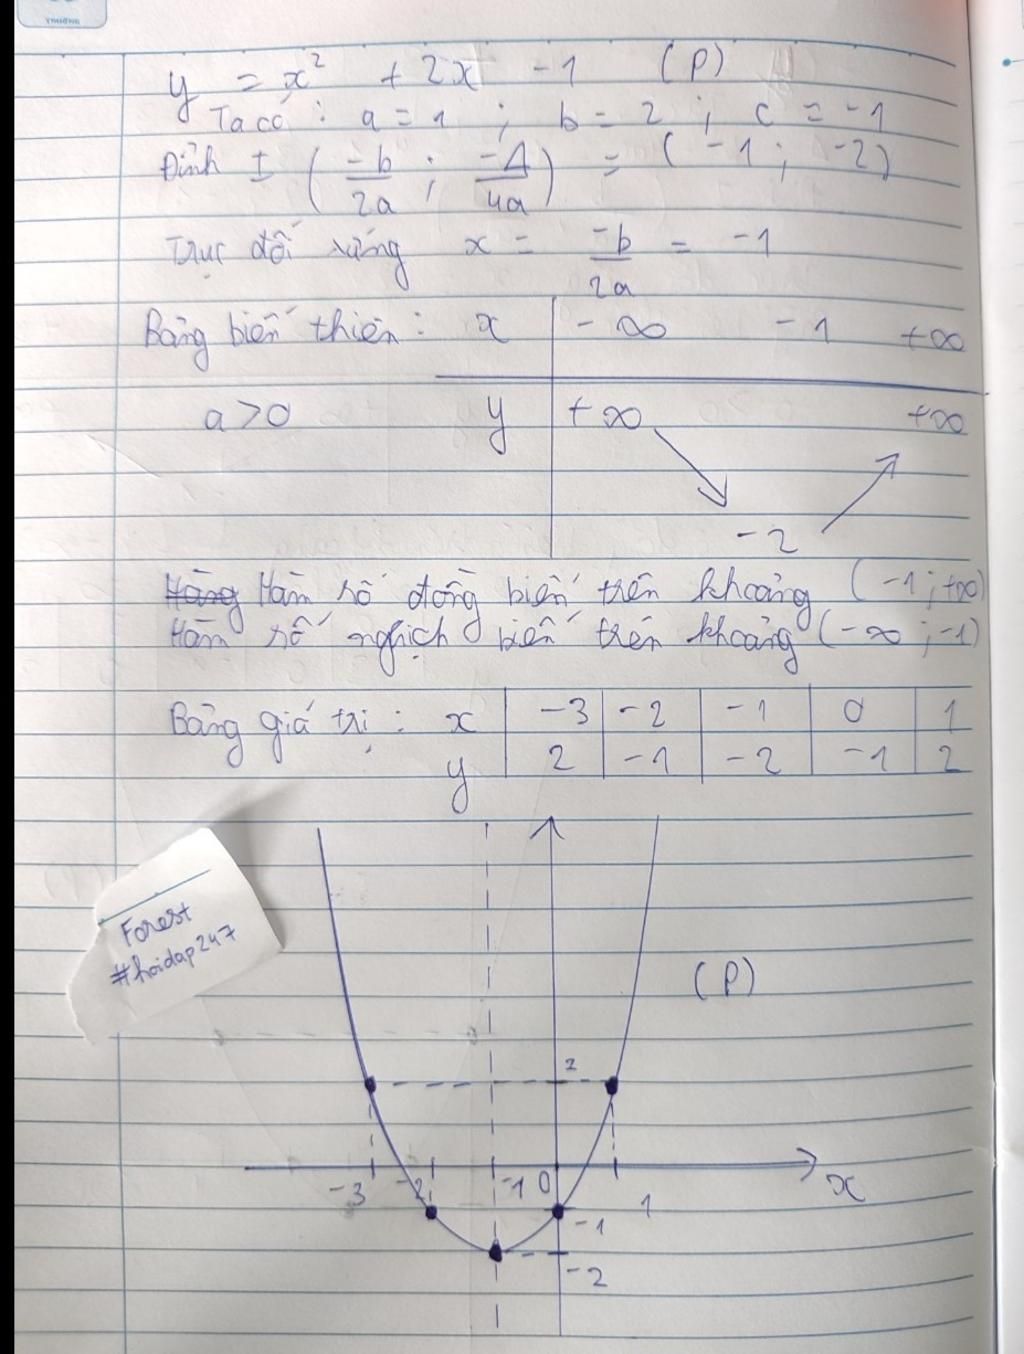 THƯỜNG
y = x² + 2x - 1 (P)
Ta có : a = 1 ; b = 2 ; c = -1
Đỉnh I (-b/2a ; -Δ/4a) = (-1 ; -2)
Trục đối xứng x = -b/2a = -1
Bảng biến thiên : x -∞ -1 +∞
a>0 y +∞ +∞
-2
Hàng Hàm số đồng biến trên khoảng (-1 ; +∞)
Hàm số nghịch biến trên khoảng (-∞ ; -1)
Bảng giá trị : x -3 -2 -1 0 1
y 2 -1 -2 -1 2
Forest
#hoidap247
(P)
2
-3 -2 -1 0 1 x
-1
-2